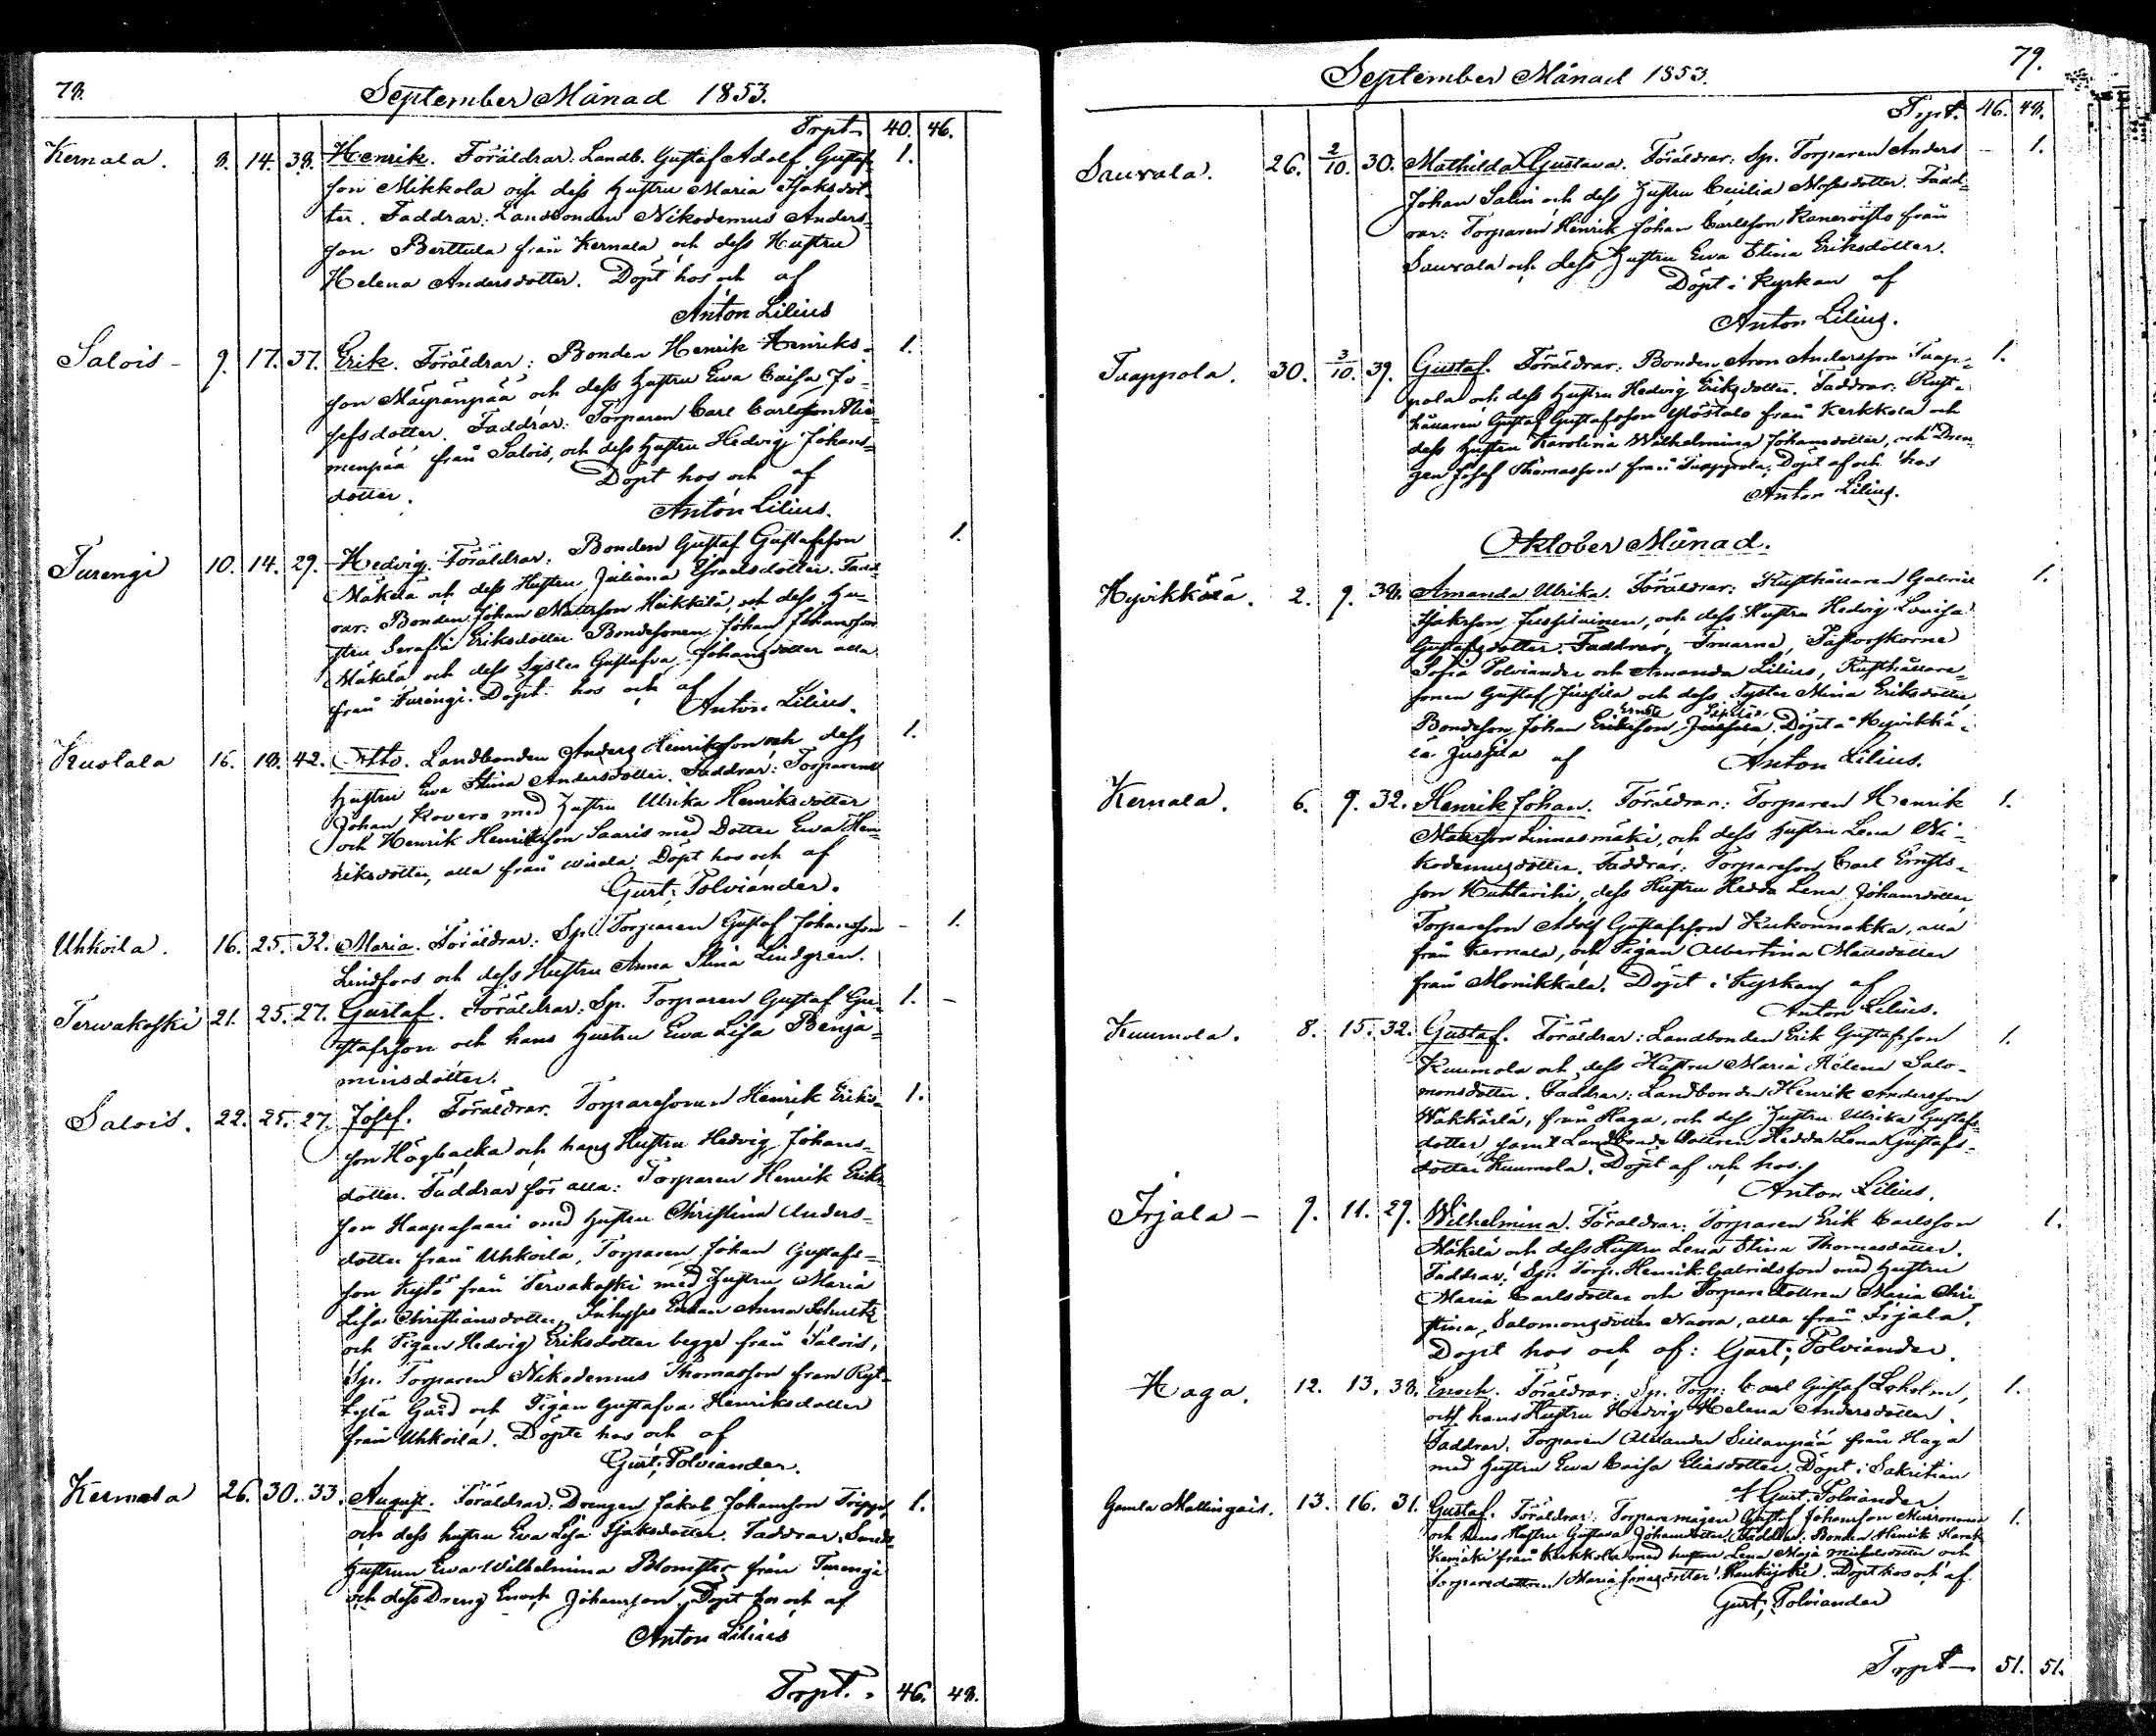 78.
September Månad 1853.
Trpt 40. 46.
Kernala. 8. 14. 38. Henrik. Föräldrar: Landb. Gustaf Adolf Gustaf-
son Mikkola och dess Hustru Maria Isaksdot- 1.
ter. Faddrar: Landbonden Nikodemus Anders-
son Berttula från Kernala och dess Hustru
Helena Andersdotter. Döpt hos och af
Anton Lilius
Salois - 9. 17. 37. Erik. Föräldrar: Bonden Henrik Henriks- 1.
son Mäyränpää och dess hustru Ewa Caisa Jo-
sefsdotter. Faddrar: Torparen Carl Carlsson Nie-
menpää från Salois, och dess hustru Hedvig Johans-
dotter. Döpt hos och af
Anton Lilius.
Turengi 10. 14. 29. Hedvig. Föräldrar: Bonden Gustaf Gustafsson 1.
Mäkelä och dess Hustru Juliana Israelsdotter. Fadd-
rar: Bonden Johan Mattsson Heikkilä, och dess Hu-
stru Serafia Eriksdotter Bondesonen Johan Johansson
Mäkelä och dess Syster Gustafva Johansdotter alla
från Turengi. Döpt hos och af
Anton Lilius.
Kustala 16. 18. 42. Otto. Landbonden Anders Henriksson och dess 1.
hustru Ewa Stina Andersdotter. Faddrar: Torparena
Johan Rovere med hustru Ulrika Henriksdotter
och Henrik Henriksson Saaris med Dotter Ewa Hen-
riksdotter, alla från Wirala. Döpt hos och af
Gust; Polviander.
Uhkoila. 16. 25. 32. Maria. Föräldrar: Sp. Torparen Gustaf Johansson - 1.
Lindfors och dess Hustru Anna Stina Lindgren.
Terwakoski 21. 25. 27. Gustaf. Föräldrar: Sp. Torparen Gustaf Gu- 1. -
stafsson och hans hustru Ewa Lisa Benja-
minsdotter.
Salois. 22. 25. 27. Josef. Föräldrar: Torparesonen Henrik Eriks- 1.
son Högbacka och hans Hustru Hedvig Johans-
dotter. Faddrar för alla: Torparen Henrik Eriks-
son Haapasaari med hustru Christina Anders-
dotter från Uhkoila, Torparen Johan Gustafs-
son Kytö från Tervakoski med hustru Maria
Lisa Christiansdotter, Inhyses Enkan Anna Schultz
och Pigan Hedvig Eriksdotter begge från Salois,
Sp. Torparen Nikodemus Thomasson från Ryt-
kylä Gård och Pigan Gustafva Henriksdotter
från Uhkoila. Döpte hos och af
Gust; Polviander.
Kernala 26. 30. 33. August. Föräldrar: Drengen Jakob Johansson Tripp, 1.
och dess hustru Eva Lisa Isaksdotter. Faddrar:
hustrun Ewa Wilhelmina Blomster från Turengi
och dess Dreng Enoch Johansson. Döpt hos och af
Anton Lilius
Trpt. 46. 48.
79.
September Månad 1853.
Trpt. 46. 48.
Sauvala. 26. 2/10. 30. Mathilda Gustava. Föräldrar: Sp. Torparen Anders - 1.
Johan Salin och dess Hustru Cecilia Mosesdotter. Fadd-
rar: Torparen Henrik Johan Carlsson Kanervisto från
Sauvala och dess Hustru Ewa Stina Eriksdotter.
Döpt i Kyrkan af
Anton Lilius.
Tuappola. 30. 3/10. 39. Gustaf. Föräldrar: Bonden Aron Andersson Tuap- 1.
pola och dess hustru Hedvig Eriksdotter. Faddrar: Rust-
hållaren Gustaf Gustafsson Ylöstalo från Kerkkola och
dess hustru Karolina Wilhelmina Johansdotter, och Dren-
gen Josef Thomasson från Tuappola. Döpt af och hos
Anton Lilius.
Oktober Månad.
Hyvikkälä. 2. 9. 38. Amanda Ulrika. Föräldrar: Rusthållaren Gabriel 1.
Isaksson Jussilainen, och dess Hustru Hedvig Lovisa
Gustafsdotter. Faddrar, Fruarne, Pastorskorne
Sofia Polviander och Amanda Lilius, Rusthållare-
sonen Gustaf Jussila och dess Syster Mina Eriksdotter,
Bondeson Johan Eriksson Jussila. Döpt å Hyvikkä-
lä Jussila af Anton Lilius.
Kernala. 6. 9. 32. Henrik Johan. Föräldrar: Torparen Henrik 1.
Mattsson Linnasmäki, och dess hustru Lena Ni-
kodemusdotter. Faddrar: Torpareson Carl Ernsts-
son Huhtariki, dess Hustru Hedda Lena Johansdotter,
Torpareson Adolf Gustafsson Kukonnokka, alla
från Kernala, och Pigan Albertina Mattsdotter
från Monikkala. Döpt i Kyrkan af
Anton Lilius.
Kuumola. 8. 15. 32. Gustaf. Föräldrar: Landbonden Erik Gustafsson 1.
Kuumola och dess Hustru Maria Helena Salo-
monsdotter. Faddrar: Landbonden Henrik Andersson
Wähkärlä, från Haga, och dess Hustru Ulrika Gustafs-
dotter samt Landbonde dottren Hedda Lena Gustafs-
dotter Kuumola. Döpt af och hos
Anton Lilius.
Irjala - 9. 11. 29. Wilhelmina. Föräldrar: Torparen Erik Carlsson 1.
Mäkelä och dess Hustru Lena Stina Thomasdotter.
Faddrar: Sp. Torp. Henrik Gabrielsson med hustru
Maria Carlsdotter och Torpare dottren Maria Chri
stina Salomonsdotter Naora, alla från Irjala.
Döpt hos och af: Gust; Polviander.
Haga. 12. 13. 38. Enoch. Föräldrar: Sp. Torp: Carl Gustaf Loholm, 1.
och hans Hustru Hedvig Helena Andersdotter.
Faddrar. Torparen Alexander Sillanpää från Haga
med hustru Ewa Caisa Eliasdotter. Döpt i Sakristian
af Gust. Polviander.
Gamla Mallingais. 13. 16. 31. Gustaf. Föräldrar: Torparemågen Gustaf Johansson Murronmaa 1.
och hans Hustru Gustava Johansdotter. Faddrar: Bonden Henrik Harak-
kamäki från Kerkkola med hustru Lena Maja Michelsdotter och
Torparedottren Maria Jonasdotter Raukijoki. Döpt hos och af
Gust; Polviander
Trpt 51. 51.